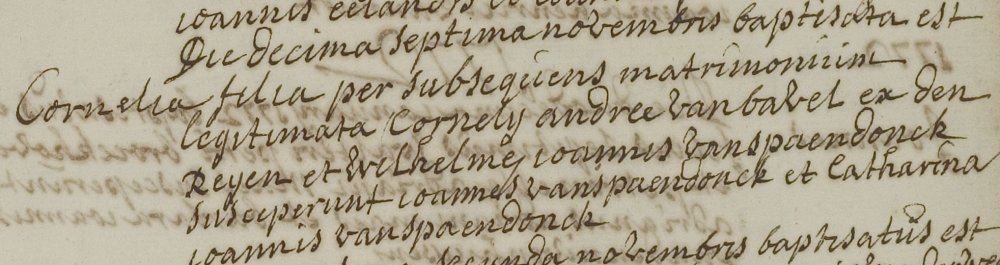 ioannis
Die decima septima novembris baptisata est
Cornelia filia per subsequens matrimonium
legitimata Cornelij andree van bavel ex den
Reyen et Wilhelmej ioannis vanspaendonck
susceperunt ioannes vanspaendonck et Catharina
ioannis vanspaendonck
secunda novembris baptisatus est